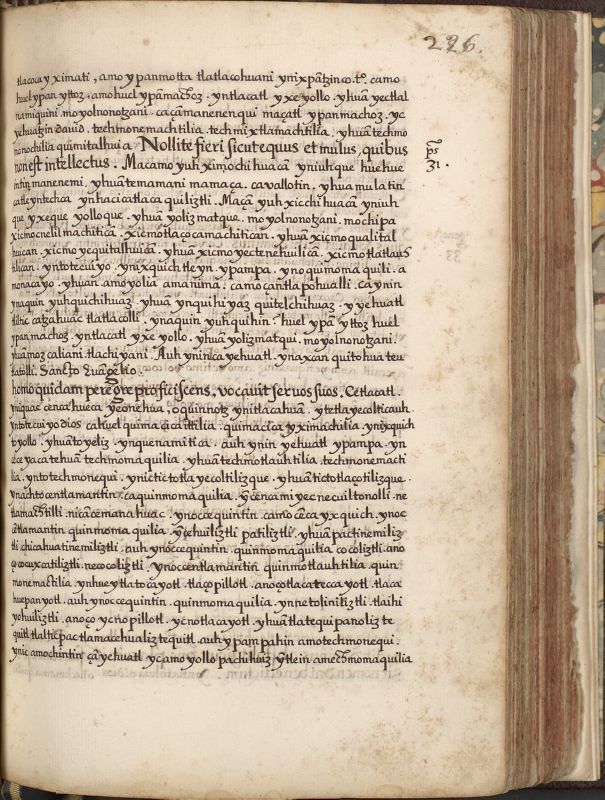 226.
tlacoca yximati, amo ypanmotta tlatlacohuani ynixpãtzinco.tº. camo
huel ypan yttoz. amo huel ypãmachoz. yntlacatl yxe yollo. yhuã yectlal
namiquini. moyolnonotzani. caçãmanenenqui maçatl ypan machoz. yc
yehuatzin david. techmonemachtilia. techmixtlamachtilia. yhuã techmo
nonochilia quimitalhuia Nollite fieri sicut equus et mulus, quibus
non est intellectus. Macamo yuh ximochihuacã yniuhque huehue
intin manenemi. yhuã temamani mamaça. cavallotin. yhua mulatin
ca tle yntechca ynhacicatlaca quiliztli. Maçã yuh xicchihuacã yniuh
que yxeque yolloque. yhuã yolizmatque. moyolnonotzani. mochipa
xicmocnelilmachiticã. xicmotlaçocamachitican. yhuã xicmoqualital
huican. xicmoyequitalhuicã. yhuã xicmoyectenehuilicã. xicmotlatlauh
tilican. yntotecuiyo. ynixquich tleyn. ypampa. ynoquimomaquili. a
nonacayo. yhuan amoyolia amanima: camo çantlapohualli. caynin
ynaquin yuhquichihuaz. yhua ynquihiyaz quitelchihuaz. yyehuatl
tlilhic catzahuac tlatlacolli. ynaquin yuhquihin: huel ypã yttoz huel
ypan machoz. yntlacatl yxe yollo. yhuã yolizmatqui. moyolnonotzani.
yhuã moz caliani tlachiyani. Auh yninca yehuatl. ynaxcan quitohua teu
tlatolli. Sancto Euãgelio.
homo quidam peregre proficiscens, vocavit servos suos. Ce tlacatl.
yniquac cenca hueca yeonehua, oquinnotz ynitlacahuã. ytetlayecolticauh.
yntotecuiyo dios cahuel quimacicaittilia. quimacicaximachilia. ynixquich
toyollo. yhuã toyeliz. ynquenamitica. auh ynin yehuatl ypampa. yn
icecyaca tehuã techmomaquilia. yhuã techmotlauhtilia. techmonemacti
lia. yntotechmonequi. ynictictotlayecoltilizque. yhuã tictotlaçotilizque.
ynachto centlamantin. caquinmomaquilia. yçencamiyec necuiltonolli. ne
tlamachtilli. nicã cemanahuac. ynocce quintin. camo ceca yxquich. ynoc
cẽtlamantin quinmomaquilia. yçehuiliztli patiliztli. yhuã pactinemiliz
tli. chicahuatinemiliztli. auh ynocce quintin. quinmomaquilia cocoliztli. ano
ço cocuxcatiliztli. necocoliztli. ynoccentlamantin quinmotlauhtilia. quin
monemactilia. ynhueytlatocayotl. tlaçopillotl. anoço tlacatecayotl. tlaca
huepanyotl. auh ynocce quintin. quinmomaquilia. ynnetoliniliztli tlaihi
yohuiliztli. anoço ycnopillotl. ycnotlacayotl. yhuã tlatequipanoliz te
quitl tlalticpac tlamacehualiztequitl. auh ypampahin amotechmonequi.
ynic amochintin çã yehuatl yc amoyollo pachihuiz ỹtlein amechmomaquilia
ps
31.